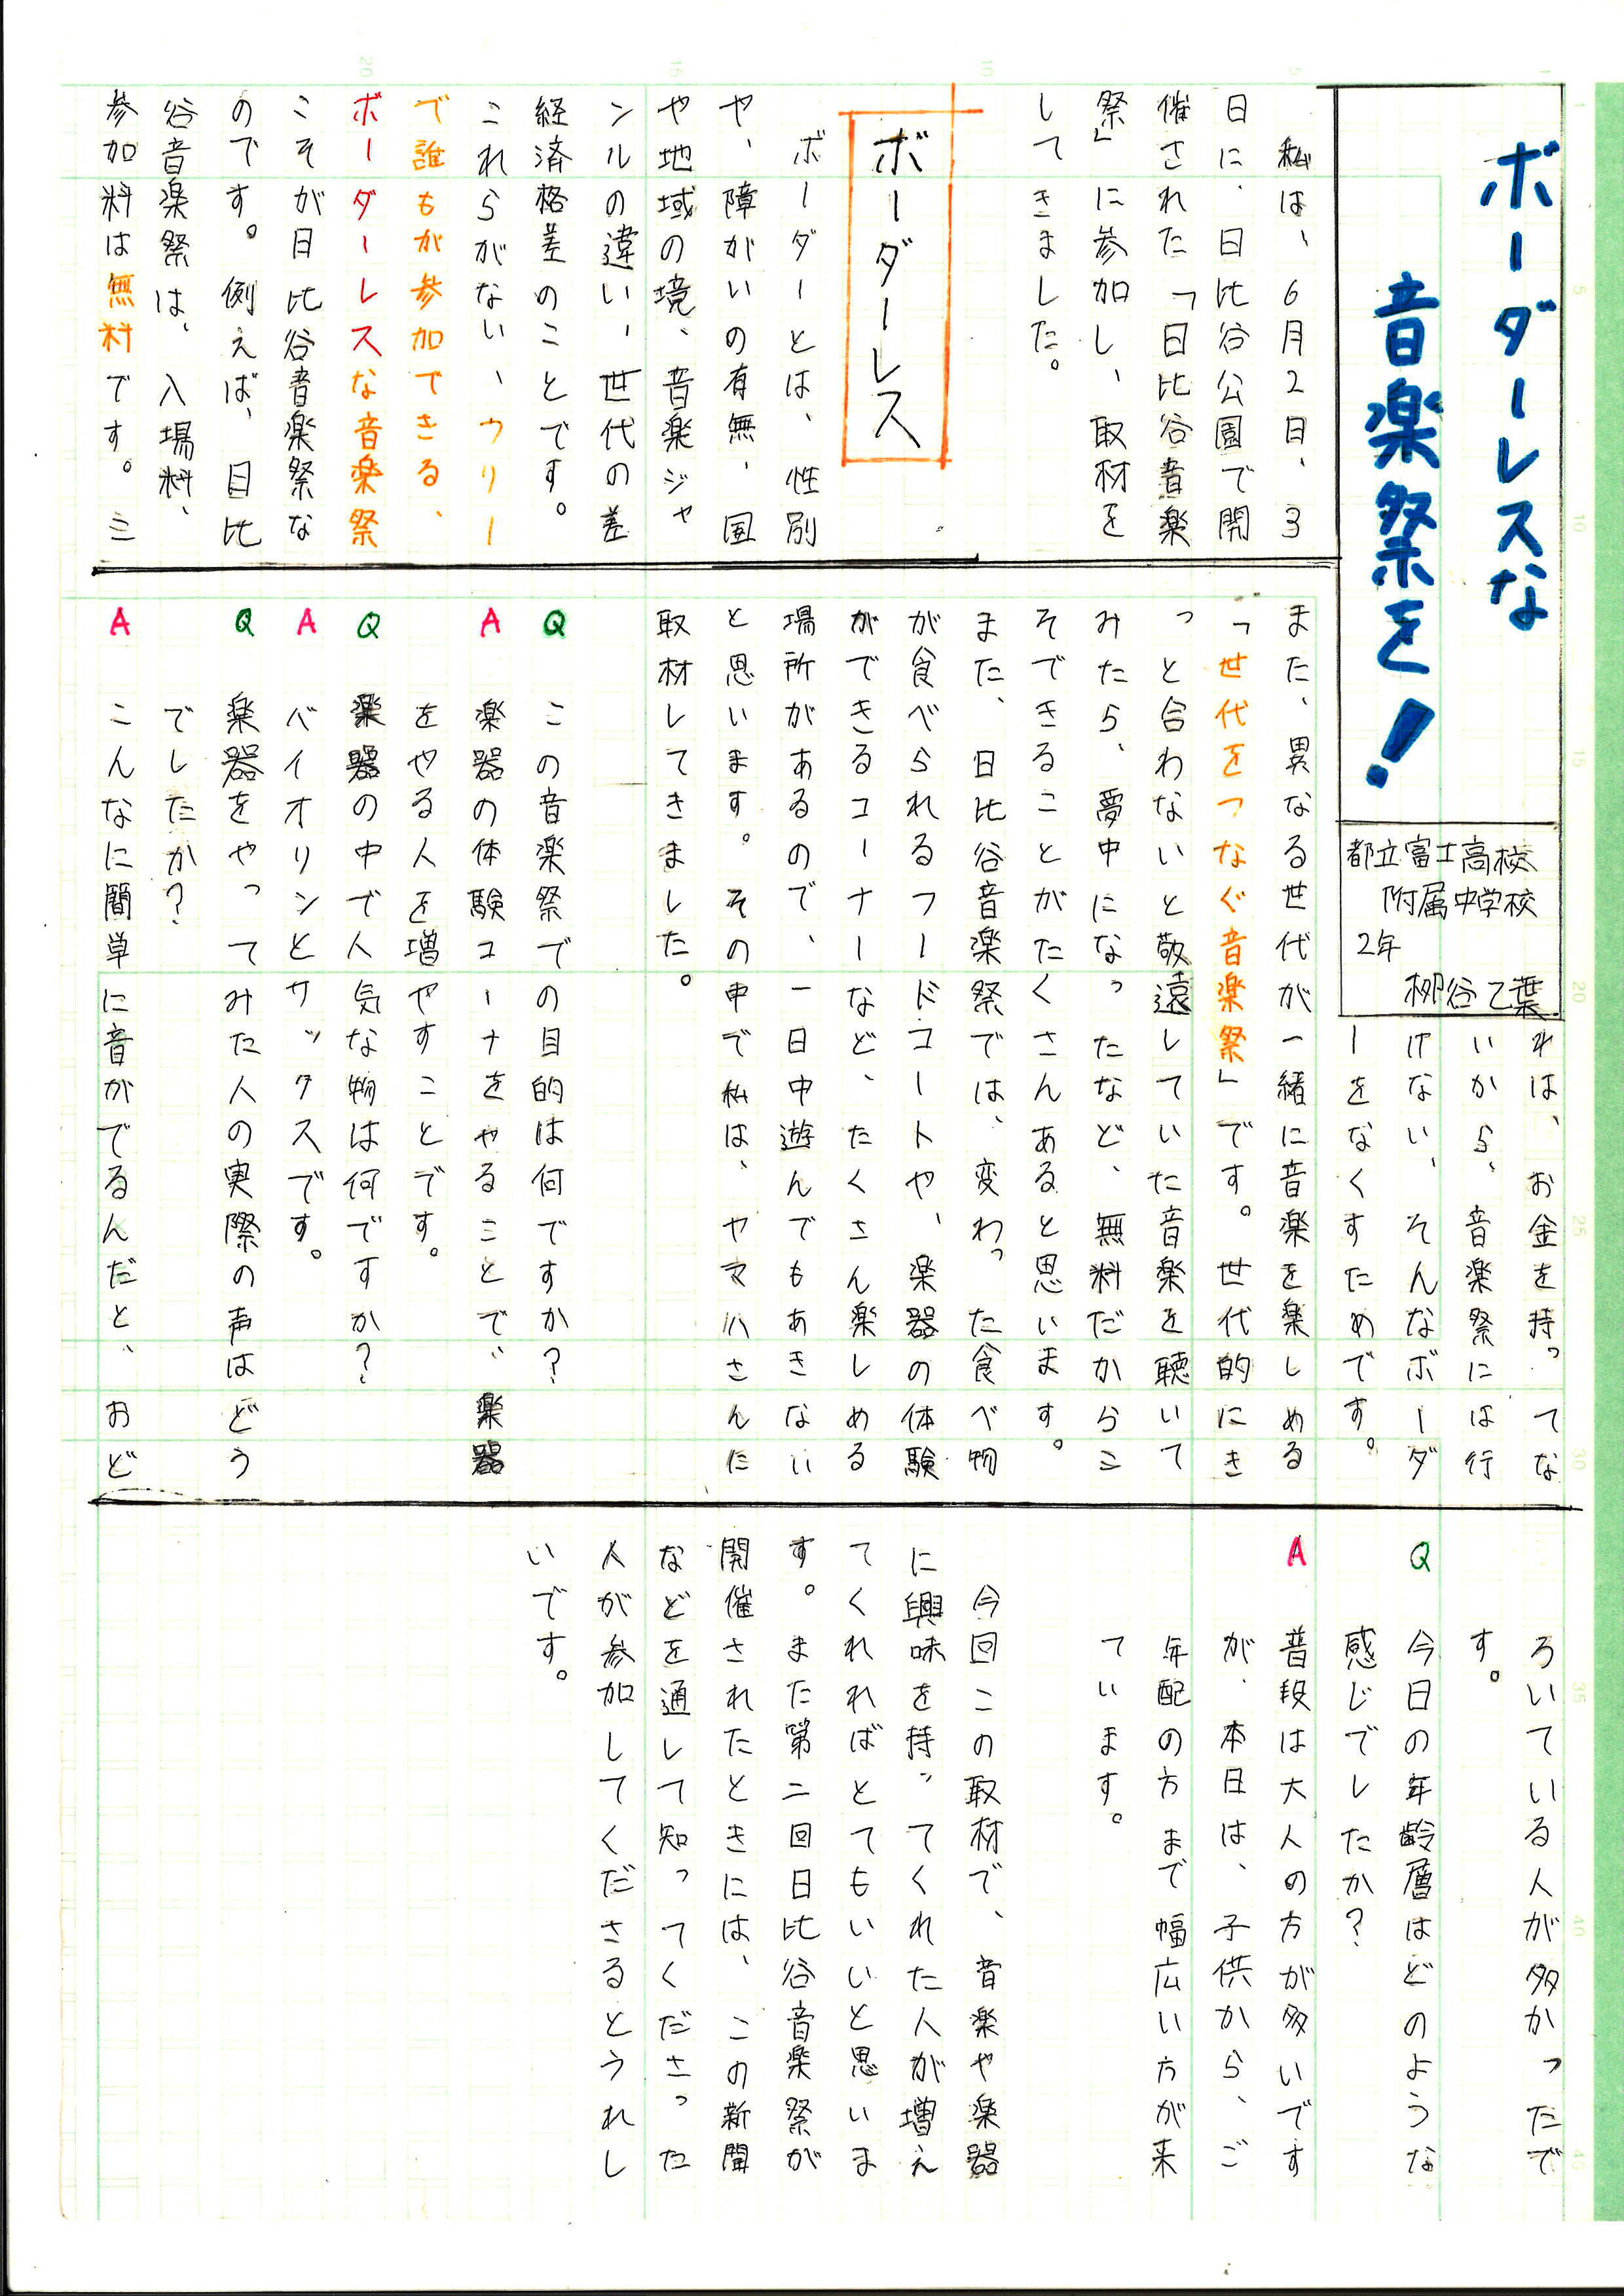 ボーダーレスな
音楽祭を!
都立富士高校
附属中学校
2年
柳谷乙葉
私は、6月2日、3
日に、日比谷公園で開
催された「日比谷音楽
祭」に参加し、取材を
してきました。
ボーダーレス
ボーダーとは、性別
や、障がいの有無、国
や地域の境、音楽ジャ
ンルの違い、世代の差
経済格差のことです。
これらがない、フリー
で誰もが参加できる、
ボーダーレスな音楽祭
こそが日比谷音楽祭な
のです。例えば、日比
谷音楽祭は、入場料、
参加料は無料です。こ
れは、お金を持ってな
いから、音楽祭には行
けない、そんなボーダ
ーをなくすためです。
また、異なる世代が一緒に音楽を楽しめる
「世代をつなぐ音楽祭」です。世代的にき
っと合わないと敬遠していた音楽を聴いて
みたら、夢中になったなど、無料だからこ
そできることがたくさんあると思います。
また、日比谷音楽祭では、変わった食べ物
が食べられるフードコートや、楽器の体験
ができるコーナーなど、たくさん楽しめる
場所があるので、一日中遊んでもあきない
と思います。その中で私は、ヤマハさんに
取材してきました。
Q この音楽祭での目的は何ですか?
A 楽器の体験コーナをやることで、楽器
をやる人を増やすことです。
Q 楽器の中で人気な物は何ですか?
A バイオリンとサックスです。
Q 楽器をやってみた人の実際の声はどう
でしたか?
A こんなに簡単に音がでるんだと、おど
ろいている人が多かったで
す。
Q 今日の年齢層はどのような
感じでしたか?
A 普段は大人の方が多いです
が、本日は、子供から、ご
年配の方まで幅広い方が来
ています。
今回この取材で、音楽や楽器
に興味を持ってくれた人が増え
てくれればとてもいいと思いま
す。また第二回日比谷音楽祭が
開催されたときには、この新聞
などを通して知ってくださった
人が参加してくださるとうれし
いです。